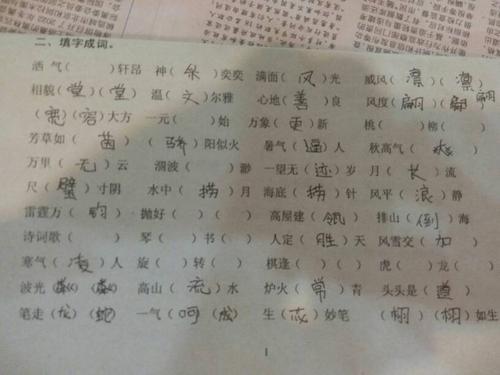 二、填字成词。
酒 气（　　）轩昂　神（采）奕奕　满面（风）光　威风（凛）（凛）
相貌（堂）（堂）　温（文）尔雅　心地（善）良　风度（翩）（翩）
（宽）（容）大方　一元（　　）始　万象（更）新　桃（　　）柳（　　）
芳草如（茵）（骄）阳似火　暑气（逼）人　秋高气（　　）
万里（无）云　涸波（　　）渺　一望无（迹）岁 月（长）流
尺（璧）寸阴　水中（捞）月　海底（捞）针　风平（浪）静
雷霆万（钧）　抛好（　　）（　　）　高屋建（瓴）　排山（倒）海
诗词歌（　　）　琴（　　）书（　　）　人定（胜）天　风雪交（加）
寒气（凌）人　旋（　　）转（　　）　棋逢（　　）（　　）　虎（　　）龙（　　）
波光（粼）（粼）　高山（流）水　炉火（常）青　头头是（道）
笔走（龙）（蛇）　一气（呵）（成）　生（花）妙笔　（栩）（栩）如生
1